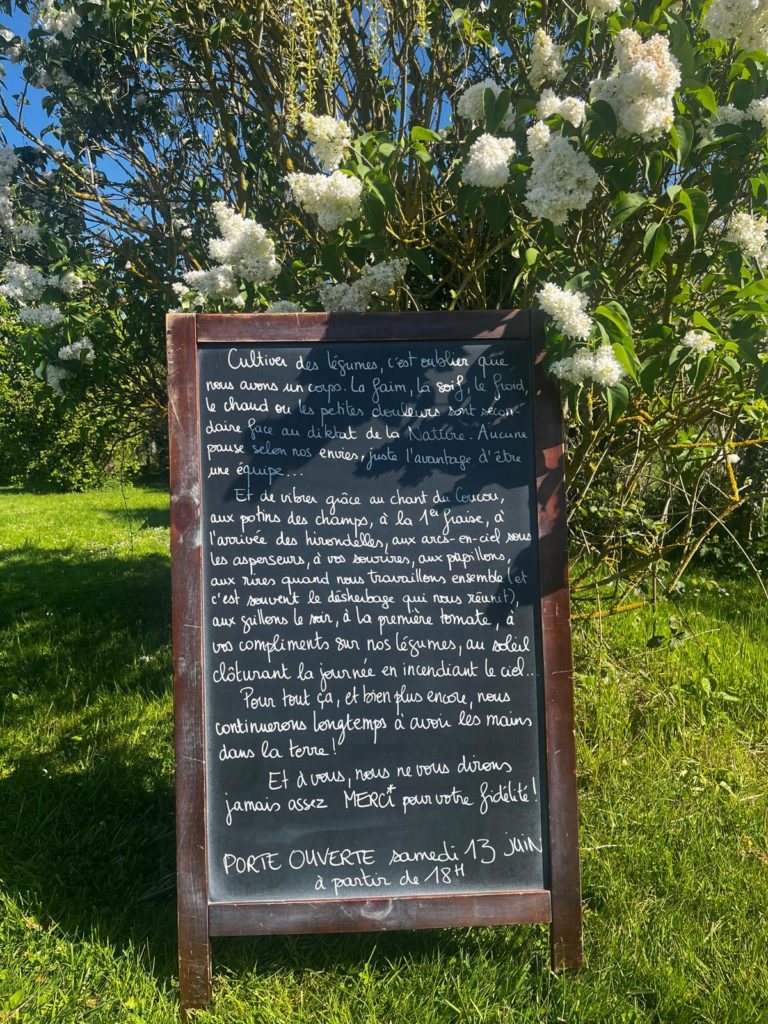 Cultiver des légumes, c'est oublier que
nous avons un corps. La faim, la soif, le froid,
le chaud ou les petites douleurs sont secon-
daire face au diktat de la Nature. Aucune
pause selon nos envies, juste l'avantage d'être
une équipe...
Et de vibrer grâce au chant du Coucou,
aux potins des champs, à la 1ère fraise, à
l'arrivée des hirondelles, aux arcs-en-ciel sous
les asperseurs, à vos sourires, aux papillons,
aux rires quand nous travaillons ensemble (et
c'est souvent le désherbage qui nous réunit),
aux grillons le soir, à la première tomate, à
vos compliments sur nos légumes, au soleil
clôturant la journée en incendiant le ciel...
Pour tout ça, et bien plus encore, nous
continuerons longtemps à avoir les mains
dans la terre !
Et à vous, nous ne vous dirons
jamais assez MERCI pour votre fidélité !
PORTE OUVERTE samedi 13 JUIN
à partir de 18H